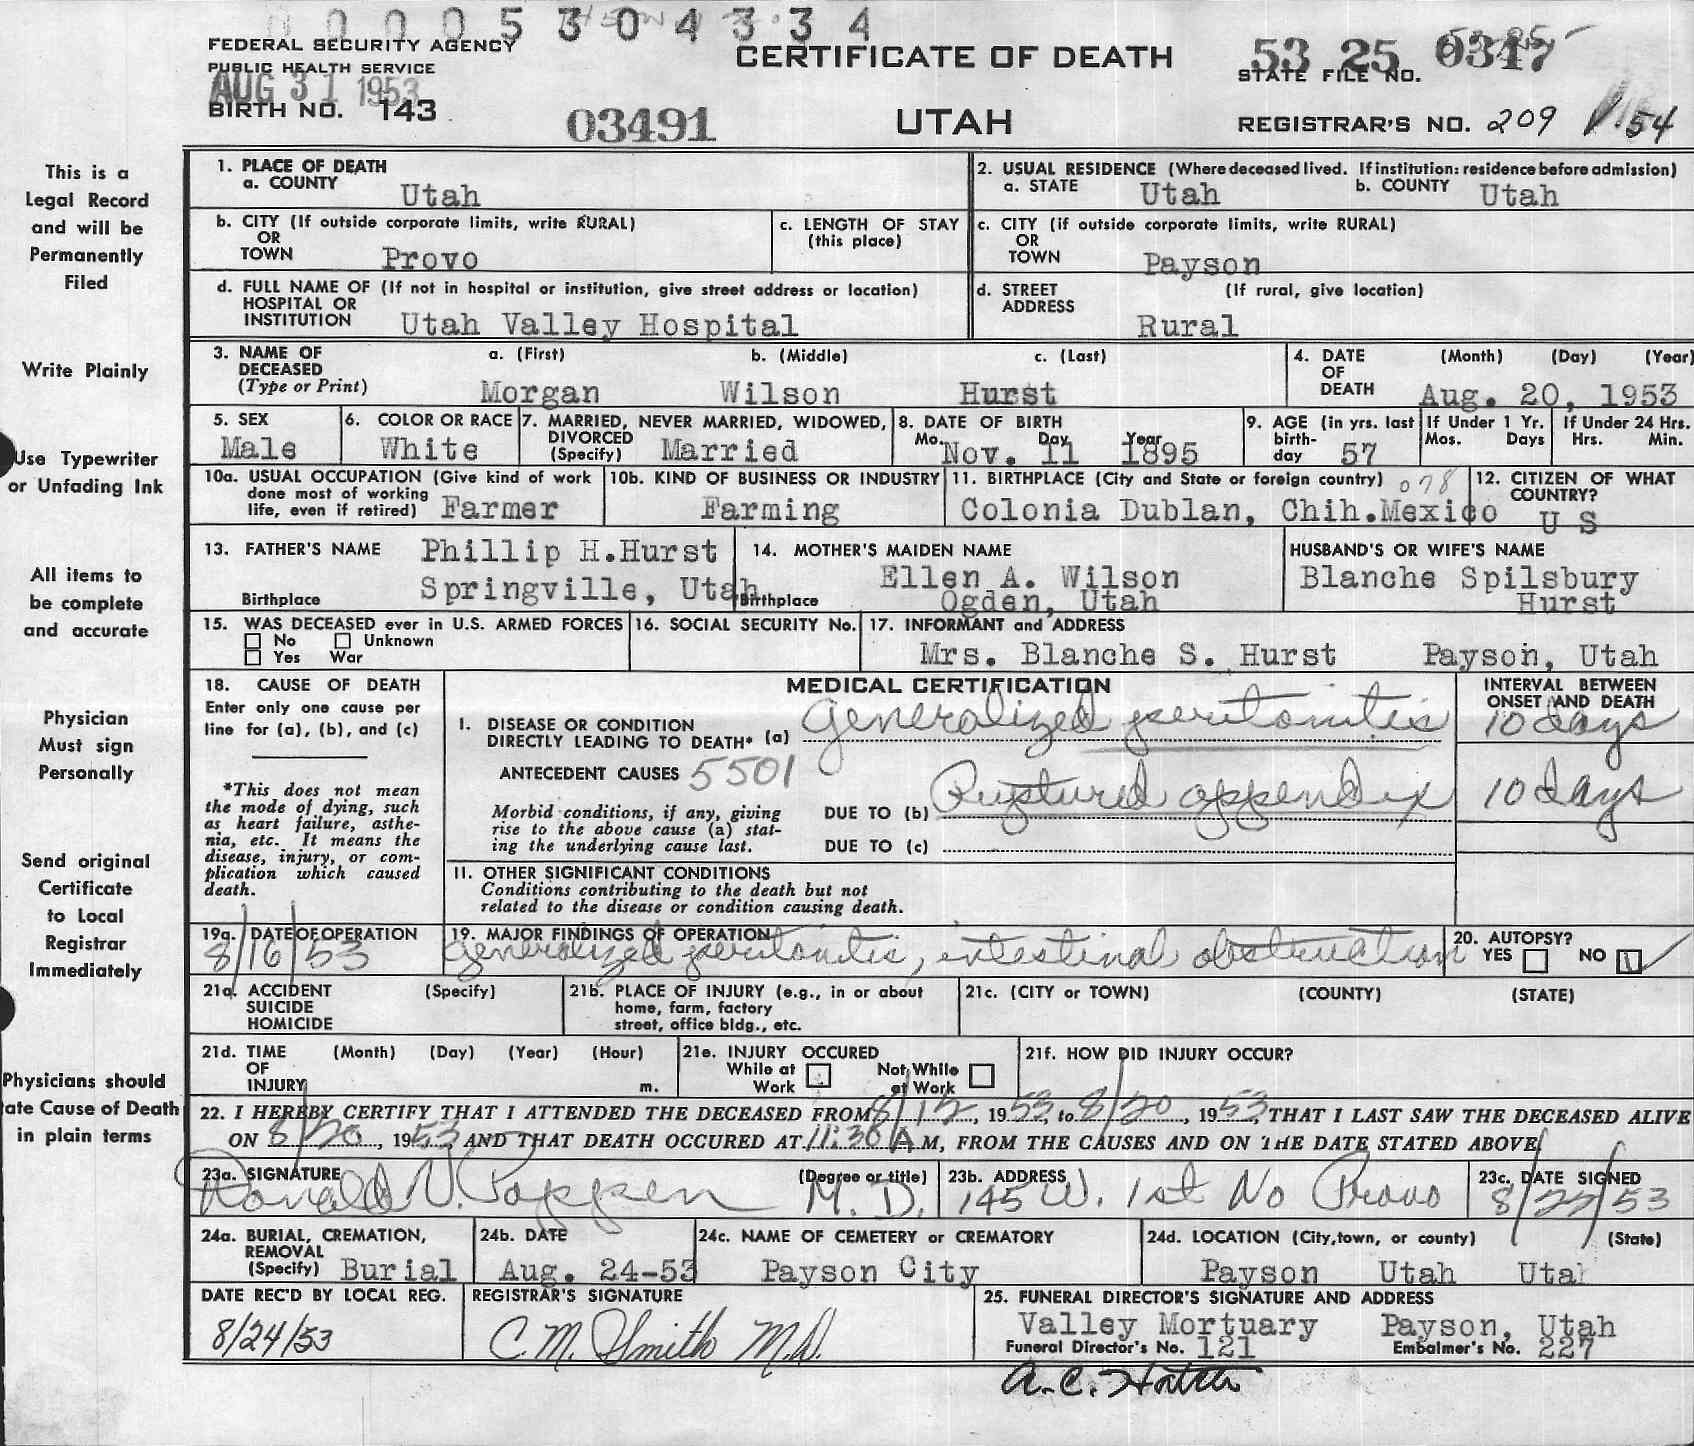 0 0 0 0 5 3 0 4 3 3 4
FEDERAL SECURITY AGENCY
PUBLIC HEALTH SERVICE
AUG 31 1953
BIRTH NO. 143
03491
CERTIFICATE OF DEATH
UTAH
53 25 0347
STATE FILE NO.
REGISTRAR'S NO. 209
54
This is a
Legal Record
and will be
Permanently
Filed
Write Plainly
Use Typewriter
or Unfading Ink
All items to
be complete
and accurate
Physician
Must sign
Personally
Send original
Certificate
to Local
Registrar
Immediately
Physicians should
ate Cause of Death
in plain terms
1. PLACE OF DEATH
a. COUNTY Utah
2. USUAL RESIDENCE (Where deceased lived. If institution: residence before admission)
a. STATE Utah b. COUNTY Utah
b. CITY (If outside corporate limits, write RURAL)
OR
TOWN Provo
c. LENGTH OF STAY
(this place)
c. CITY (if outside corporate limits, write RURAL)
OR
TOWN Payson
d. FULL NAME OF (If not in hospital or institution, give street address or location)
HOSPITAL OR
INSTITUTION Utah Valley Hospital
d. STREET (If rural, give location)
ADDRESS
Rural
3. NAME OF a. (First) b. (Middle) c. (Last)
DECEASED
(Type or Print) Morgan Wilson Hurst
4. DATE (Month) (Day) (Year)
OF
DEATH Aug. 20, 1953
5. SEX
Male
6. COLOR OR RACE
White
7. MARRIED, NEVER MARRIED, WIDOWED,
DIVORCED
(Specify) Married
8. DATE OF BIRTH
Mo. Day Year
Nov. 11 1895
9. AGE (in yrs. last
birth-
day 57
If Under 1 Yr.
Mos. Days
If Under 24 Hrs.
Hrs. Min.
10a. USUAL OCCUPATION (Give kind of work
done most of working
life, even if retired) Farmer
10b. KIND OF BUSINESS OR INDUSTRY
Farming
11. BIRTHPLACE (City and State or foreign country) 078
Colonia Dublan, Chih.Mexico
12. CITIZEN OF WHAT
COUNTRY?
U S
13. FATHER'S NAME Phillip H.Hurst
Birthplace Springville, Utah
14. MOTHER'S MAIDEN NAME
Ellen A. Wilson
Birthplace Ogden, Utah
HUSBAND'S OR WIFE'S NAME
Blanche Spilsbury
Hurst
15. WAS DECEASED ever in U.S. ARMED FORCES
No Unknown
Yes War
16. SOCIAL SECURITY No.
17. INFORMANT and ADDRESS
Mrs. Blanche S. Hurst Payson, Utah
18. CAUSE OF DEATH
Enter only one cause per
line for (a), (b), and (c)
*This does not mean
the mode of dying, such
as heart failure, asthe-
nia, etc. It means the
disease, injury, or com-
plication which caused
death.
MEDICAL CERTIFICATION
INTERVAL BETWEEN
ONSET AND DEATH
I. DISEASE OR CONDITION
DIRECTLY LEADING TO DEATH* (a) Generalized peritonitis 10 days
ANTECEDENT CAUSES 5501
Morbid conditions, if any, giving
rise to the above cause (a) stat-
ing the underlying cause last.
DUE TO (b) Ruptured appendix 10 days
DUE TO (c)
II. OTHER SIGNIFICANT CONDITIONS
Conditions contributing to the death but not
related to the disease or condition causing death.
19a. DATE OF OPERATION
8/16/53
19. MAJOR FINDINGS OF OPERATION
Generalized peritonitis, intestinal obstruction
20. AUTOPSY?
YES NO
21a. ACCIDENT (Specify)
SUICIDE
HOMICIDE
21b. PLACE OF INJURY (e.g., in or about
home, farm, factory
street, office bldg., etc.
21c. (CITY or TOWN) (COUNTY) (STATE)
21d. TIME (Month) (Day) (Year) (Hour)
OF
INJURY m.
21e. INJURY OCCURED
While at Not While
Work at Work
21f. HOW DID INJURY OCCUR?
22. I HEREBY CERTIFY THAT I ATTENDED THE DECEASED FROM 8/12, 1953, to 8/20, 1953, THAT I LAST SAW THE DECEASED ALIVE
ON 8/20, 1953 AND THAT DEATH OCCURED AT 11:30 A M, FROM THE CAUSES AND ON THE DATE STATED ABOVE
23a. SIGNATURE (Degree or title)
Ronald N. Poppen M. D.
23b. ADDRESS
145 W. 1st No Provo
23c. DATE SIGNED
8/22/53
24a. BURIAL, CREMATION,
REMOVAL
(Specify) Burial
24b. DATE
Aug. 24-53
24c. NAME OF CEMETERY or CREMATORY
Payson City
24d. LOCATION (City, town, or county) (State)
Payson Utah Utah
DATE REC'D BY LOCAL REG.
8/24/53
REGISTRAR'S SIGNATURE
C. M. Smith M.D.
25. FUNERAL DIRECTOR'S SIGNATURE AND ADDRESS
Valley Mortuary Payson, Utah
Funeral Director's No. 121 Embalmer's No. 227